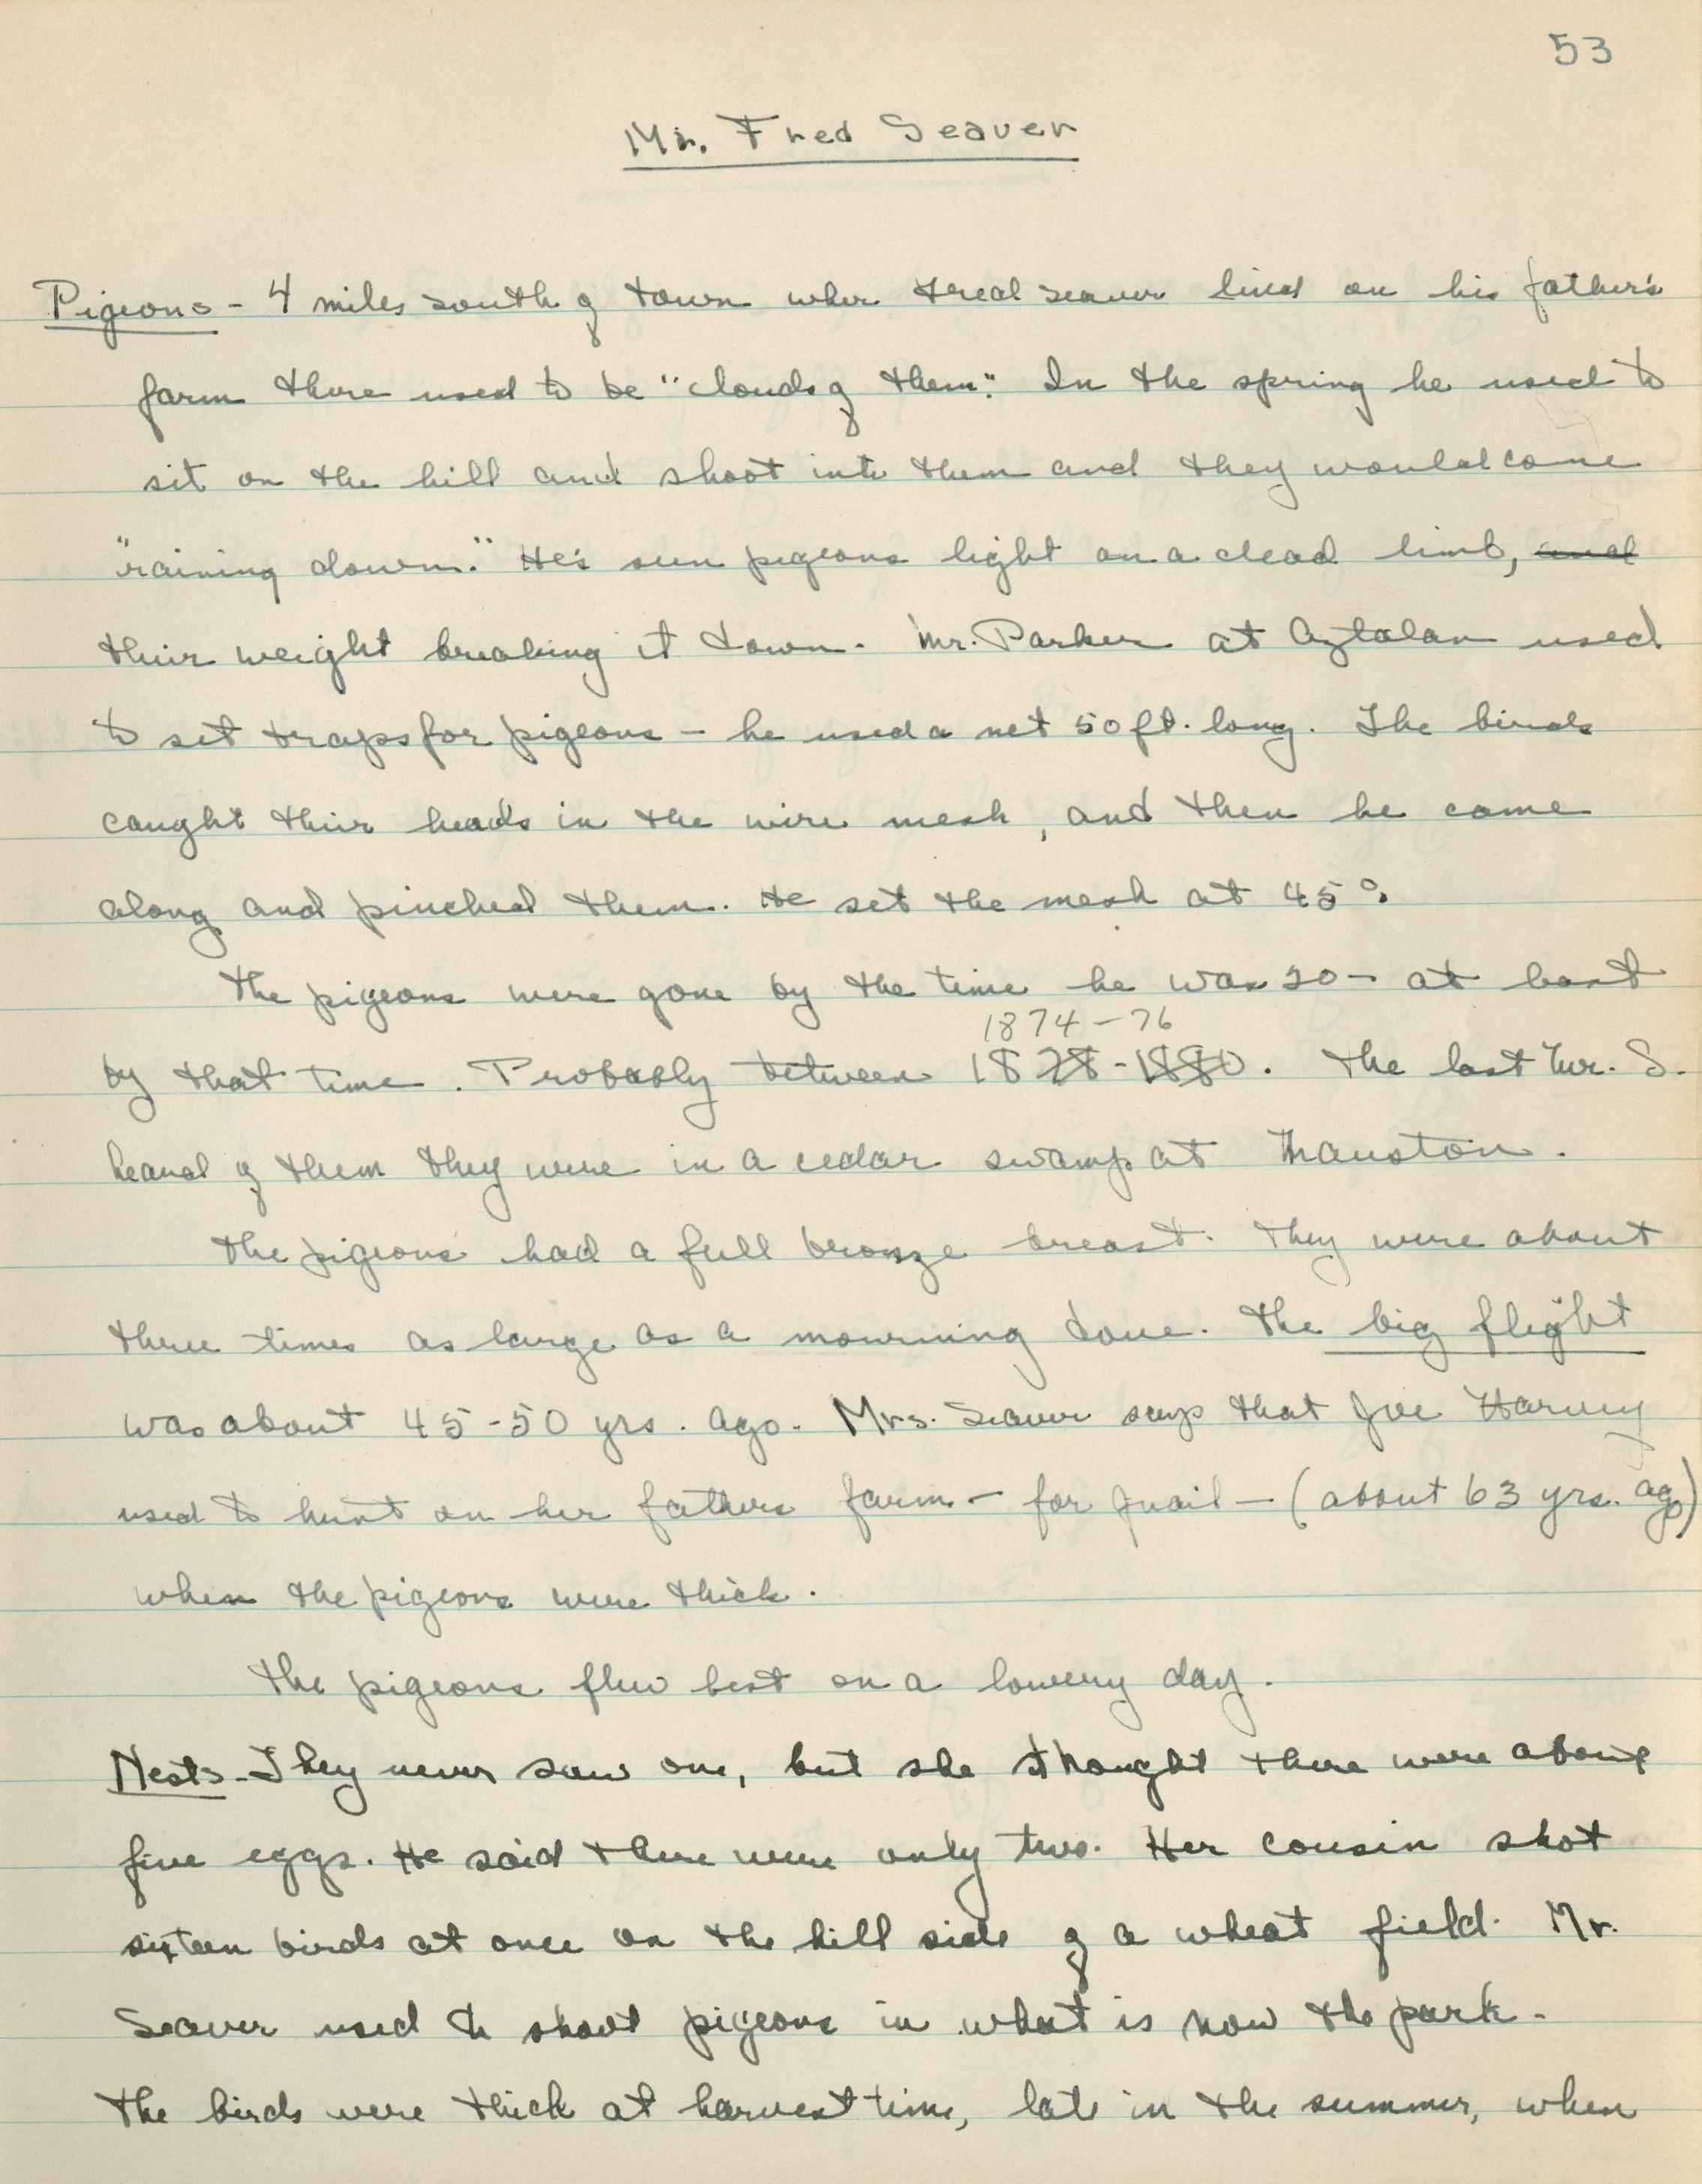 53
Mr. Fred Seaver
Pigeons - 4 miles south of town wher Fred Seaver lived on his father's
farm there used to be "clouds of them". In the spring he used to
sit on the hill and shoot into them and they would come
"raining down." He's seen pigeons light on a dead limb, and
their weight breaking it down. Mr. Parker at Aztalan used
to set traps for pigeons - he used a net 50 ft. long. The birds
caught their heads in the wire mesh, and then he came
along and pinched them. He set the mesh at 45°.
The pigeons were gone by the time he was 20 - at least
1874-76
by that time. Probably between 1878-1880. The last Mr. S.
heard of them they were in a cedar swamp at Mauston.
The pigeons had a full bronze breast. They were about
three times as large as a mourning dove. The big flight
was about 45-50 yrs. ago. Mrs. Seaver says that Joe Harvey
used to hunt on her fathers farm - for quail - (about 63 yrs. ago)
when the pigeons were thick.
The pigeons flew best on a lowery day.
Nests - They never saw one, but she thought there were about
five eggs. He said there were only two. Her cousin shot
sixteen birds at once on the hill side of a wheat field. Mr.
Seaver used to shoot pigeons in what is now the park.
The birds were thick at harvest time, late in the summer, when